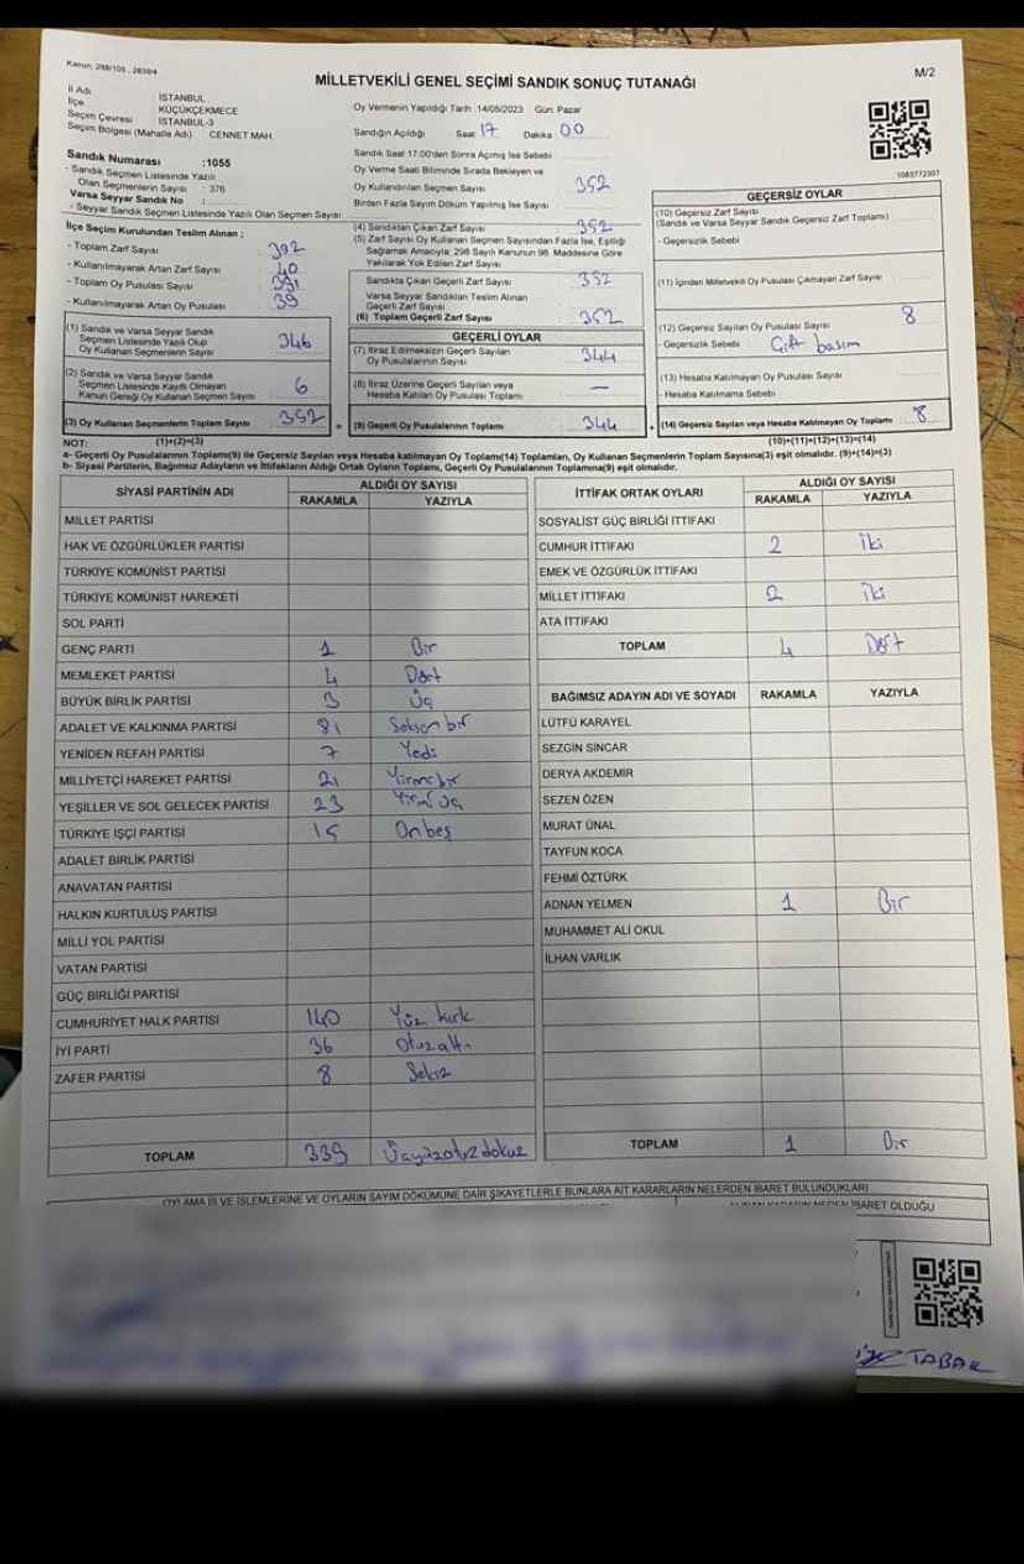 Kanun, 298/105 , 2839/4
M/2
MİLLETVEKİLİ GENEL SEÇİMİ SANDIK SONUÇ TUTANAĞI
İl Adı İSTANBUL
İlçe KÜÇÜKÇEKMECE
Seçim Çevresi İSTANBUL-3
Seçim Bölgesi (Mahalle Adı) CENNET MAH.
Sandık Numarası :1055
- Sandık Seçmen Listesinde Yazılı
Olan Seçmenlerin Sayısı : 376
Varsa Seyyar Sandık No :
- Seyyar Sandık Seçmen Listesinde Yazılı Olan Seçmen Sayısı
İlçe Seçim Kurulundan Teslim Alınan :
- Toplam Zarf Sayısı 392
- Kullanılmayarak Artan Zarf Sayısı 40
- Toplam Oy Pusulası Sayısı 391
- Kullanılmayarak Artan Oy Pusulası 39
(1) Sandık ve Varsa Seyyar Sandık
Seçmen Listesinde Yazılı Olup
Oy Kullanan Seçmenlerin Sayısı 346
(2) Sandık ve Varsa Seyyar Sandık
Seçmen Listesinde Kayıtlı Olmayan
Kanun Gereği Oy Kullanan Seçmen Sayısı 6
(3) Oy Kullanan Seçmenlerin Toplam Sayısı 352
Oy Vermenin Yapıldığı Tarih :14/05/2023 Gün: Pazar
Sandığın Açıldığı Saat 17 Dakika 00
Sandık Saat 17:00'den Sonra Açılmış İse Sebebi
Oy Verme Saati Bitiminde Sırada Bekleyen ve
Oy Kullandırılan Seçmen Sayısı 352
Birden Fazla Sayım Döküm Yapılmış İse Sayısı
(4) Sandıktan Çıkan Zarf Sayısı 352
(5) Zarf Sayısı Oy Kullanan Seçmen Sayısından Fazla İse, Eşitliği
Sağlamak Amacıyla, 298 Sayılı Kanunun 98. Maddesine Göre
Yakılarak Yok Edilen Zarf Sayısı
Sandıkta Çıkan Geçerli Zarf Sayısı 352
Varsa Seyyar Sandıktan Teslim Alınan
Geçerli Zarf Sayısı
(6) Toplam Geçerli Zarf Sayısı 352
GEÇERLİ OYLAR
(7) İtiraz Edilmeksizin Geçerli Sayılan
Oy Pusulalarının Sayısı 344
(8) İtiraz Üzerine Geçerli Sayılan veya
Hesaba Katılan Oy Pusulası Toplamı —
= (9) Geçerli Oy Pusulalarının Toplamı 344
1083772307
GEÇERSİZ OYLAR
(10) Geçersiz Zarf Sayısı
(Sandık ve Varsa Seyyar Sandık Geçersiz Zarf Toplamı)
- Geçersizlik Sebebi
(11) İçinden Milletvekili Oy Pusulası Çıkmayan Zarf Sayısı
(12) Geçersiz Sayılan Oy Pusulası Sayısı 8
- Geçersizlik Sebebi Çift basım
(13) Hesaba Katılmayan Oy Pusulası Sayısı
- Hesaba Katılmama Sebebi
+ (14) Geçersiz Sayılan veya Hesaba Katılmayan Oy Toplamı 8
NOT: (1)+(2)=(3) (10)+(11)+(12)+(13)=(14)
a- Geçerli Oy Pusulalarının Toplamı(9) ile Geçersiz Sayılan veya Hesaba katılmayan Oy Toplamı(14) Toplamları, Oy Kullanan Seçmenlerin Toplam Sayısına(3) eşit olmalıdır. (9)+(14)=(3)
b- Siyasi Partilerin, Bağımsız Adayların ve İttifakların Aldığı Ortak Oyların Toplamı, Geçerli Oy Pusulalarının Toplamına(9) eşit olmalıdır.
SİYASİ PARTİNİN ADI ALDIĞI OY SAYISI
RAKAMLA YAZIYLA
MİLLET PARTİSİ
HAK VE ÖZGÜRLÜKLER PARTİSİ
TÜRKİYE KOMÜNİST PARTİSİ
TÜRKİYE KOMÜNİST HAREKETİ
SOL PARTİ
GENÇ PARTİ 1 Bir
MEMLEKET PARTİSİ 4 Dört
BÜYÜK BİRLİK PARTİSİ 3 Üç
ADALET VE KALKINMA PARTİSİ 81 Seksen bir
YENİDEN REFAH PARTİSİ 7 Yedi
MİLLİYETÇİ HAREKET PARTİSİ 21 Yirmi bir
YEŞİLLER VE SOL GELECEK PARTİSİ 23 Yirmi üç
TÜRKİYE İŞÇİ PARTİSİ 15 On beş
ADALET BİRLİK PARTİSİ
ANAVATAN PARTİSİ
HALKIN KURTULUŞ PARTİSİ
MİLLİ YOL PARTİSİ
VATAN PARTİSİ
GÜÇ BİRLİĞİ PARTİSİ
CUMHURİYET HALK PARTİSİ 140 Yüz kırk
İYİ PARTİ 36 Otuz altı
ZAFER PARTİSİ 8 Sekiz
TOPLAM 339 Üçyüzotuzdokuz
İTTİFAK ORTAK OYLARI ALDIĞI OY SAYISI
RAKAMLA YAZIYLA
SOSYALİST GÜÇ BİRLİĞİ İTTİFAKI
CUMHUR İTTİFAKI 2 İki
EMEK VE ÖZGÜRLÜK İTTİFAKI
MİLLET İTTİFAKI 2 İki
ATA İTTİFAKI
TOPLAM 4 Dört
BAĞIMSIZ ADAYIN ADI VE SOYADI RAKAMLA YAZIYLA
LÜTFÜ KARAYEL
SEZGİN SİNCAR
DERYA AKDEMİR
SEZEN ÖZEN
MURAT ÜNAL
TAYFUN KOCA
FEHMİ ÖZTÜRK
ADNAN YELMEN 1 Bir
MUHAMMET ALİ OKUL
İLHAN VARLIK
TOPLAM 1 Bir
OYLAMA İŞ VE İŞLEMLERİNE VE OYLARIN SAYIM DÖKÜMÜNE DAİR ŞİKAYETLERLE BUNLARA AİT KARARLARIN NELERDEN İBARET BULUNDUKLARI
İBARET OLDUĞU
TABAK